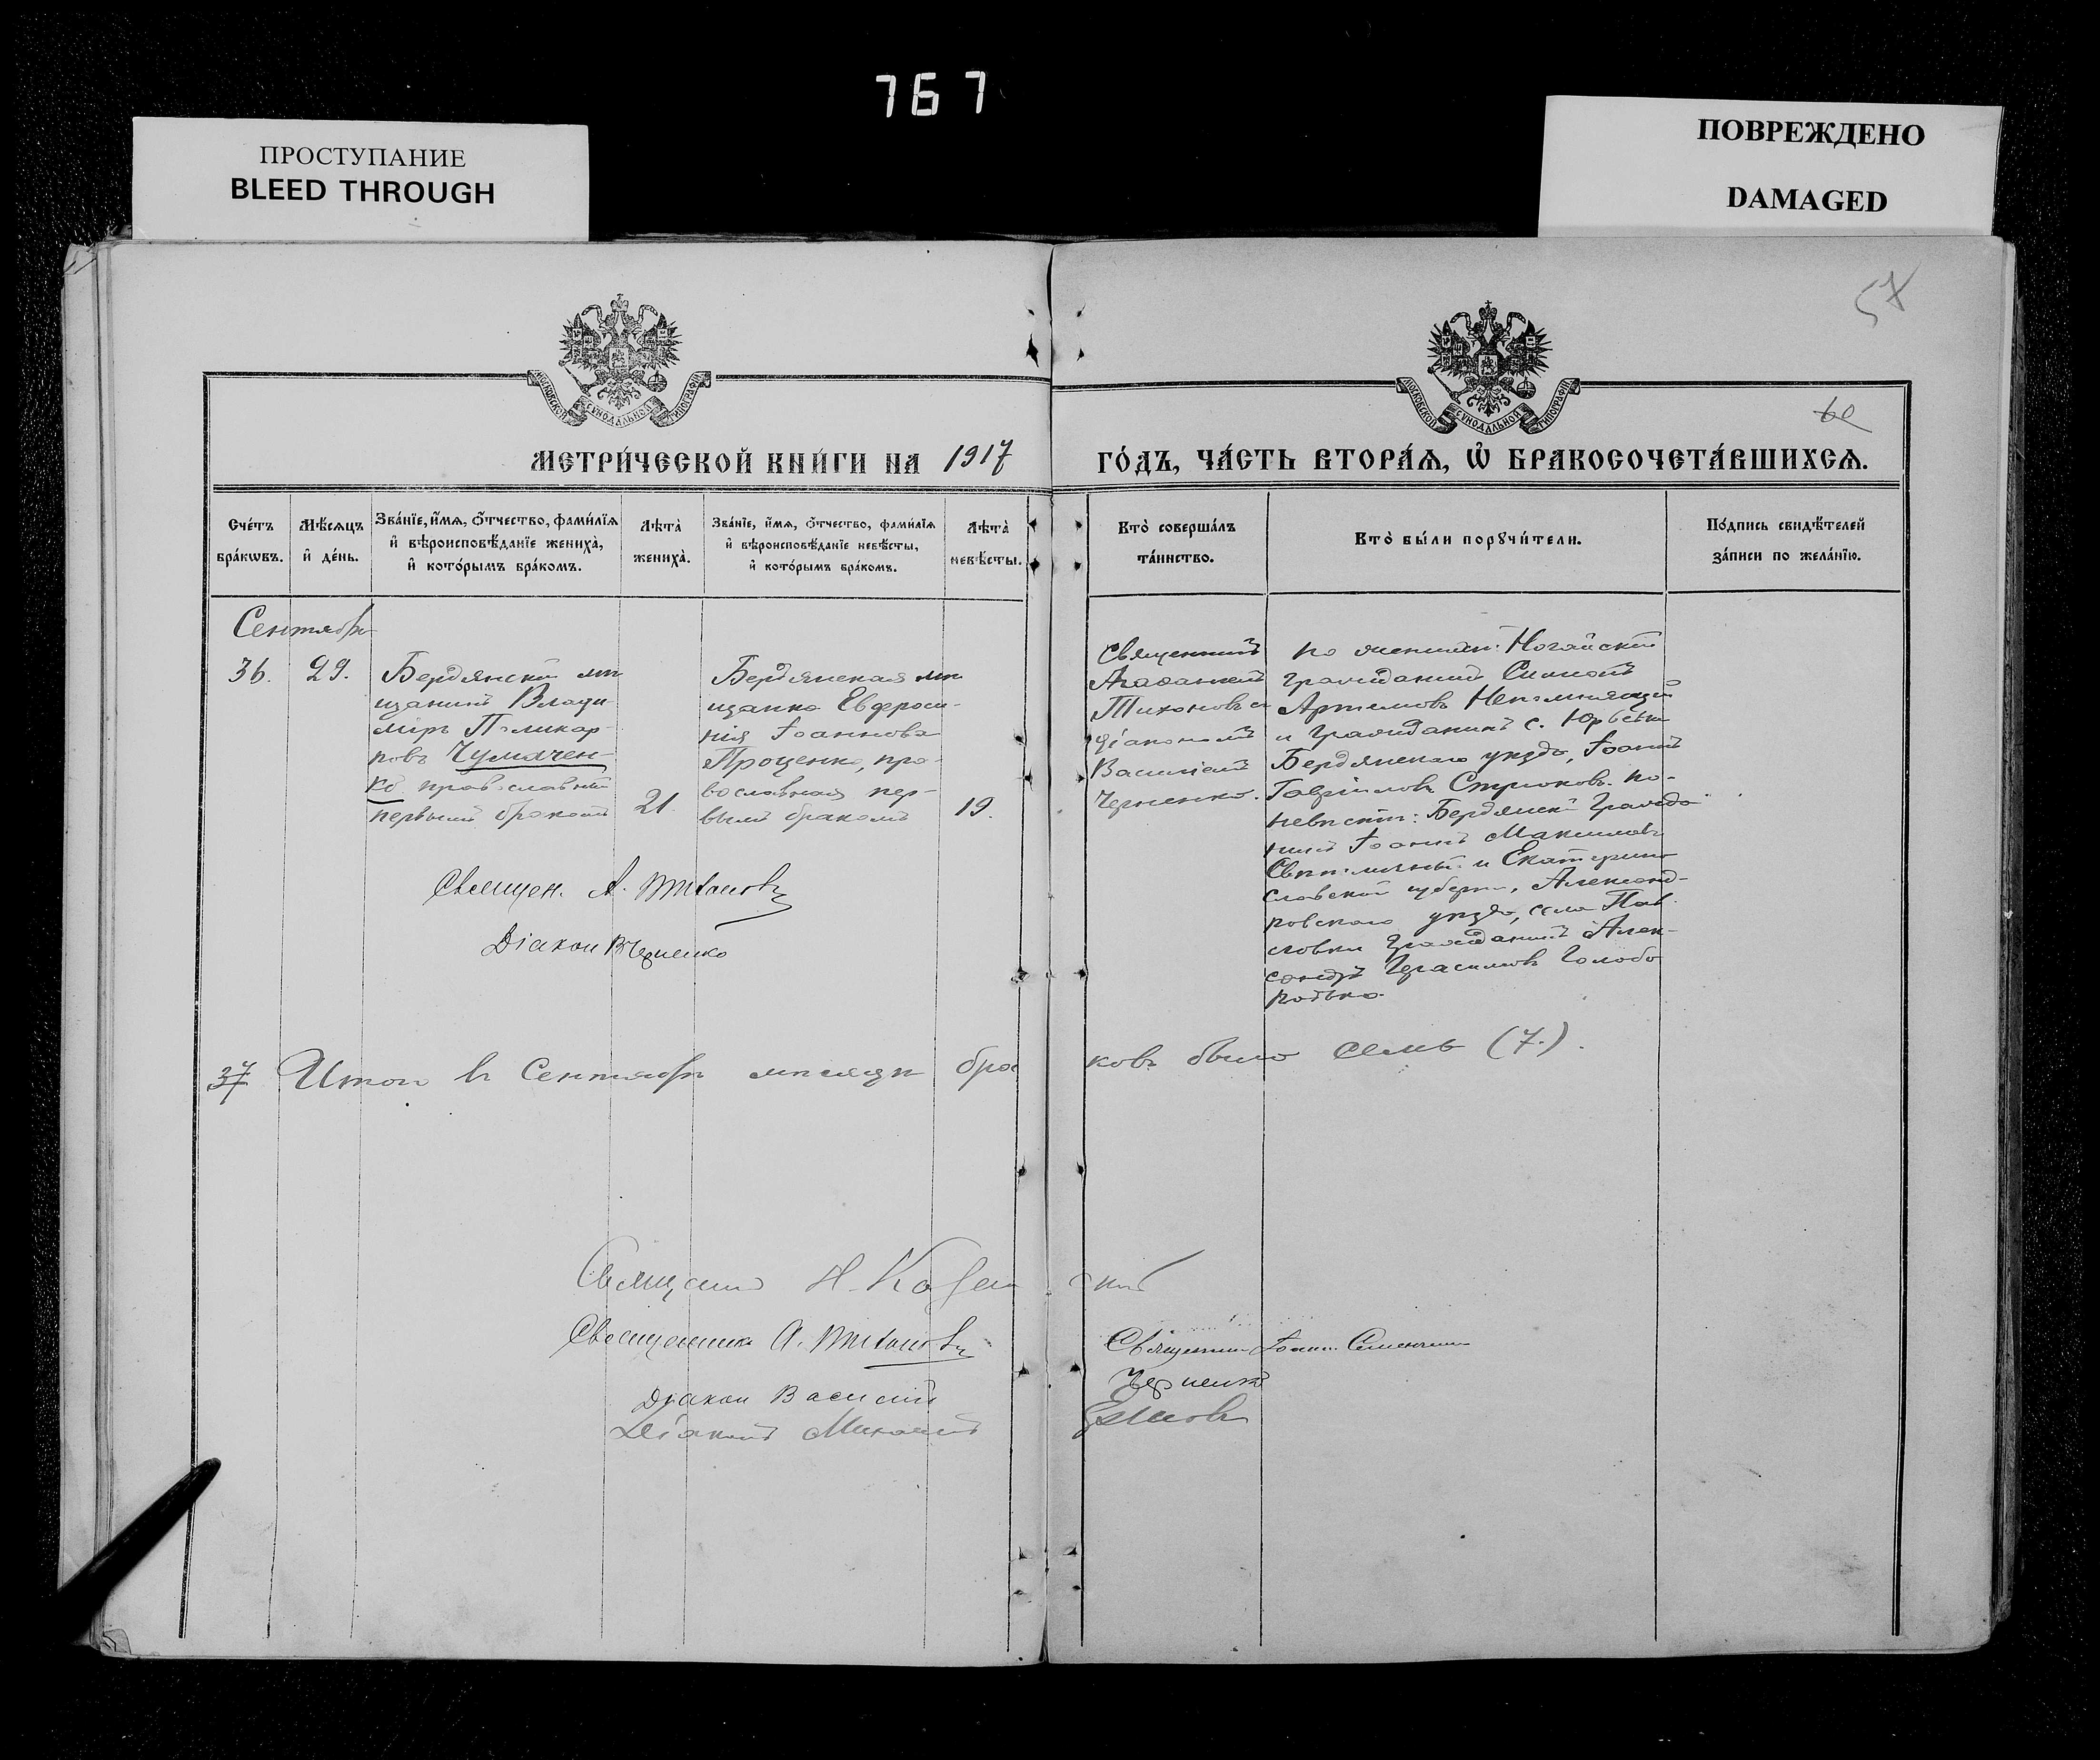 767
ПРОСТУПАНИЕ
BLEED THROUGH
ПОВРЕЖДЕНО
DAMAGED
57
МОСКОВСКОЙ СѴНОДАЛЬНОЙ ТИПОГРАФІИ
МОСКОВСКОЙ СѴНОДАЛЬНОЙ ТИПОГРАФІИ
МЕТРИ́ЧЕСКОЙ КНИ́ГИ НА 1917
ГО́ДЪ, ЧА́СТЬ ВТОРА́Ѧ, Ѽ БРАКОСОЧЕТА́ВШИХСѦ.
Сче́тъ бра́кѡвъ.
Мѣ́сѧцъ и҆ де́нь.
Зва́нїе, и҆́мѧ, ѻ҆́тчество, фами́лїѧ и҆ вѣроисповѣ́данїе жениха̀, и҆ кото́рымъ бра́комъ.
Лѣта̀ жениха̀.
Зва́нїе, и҆́мѧ, ѻ҆́тчество, фами́лїѧ и҆ вѣроисповѣ́данїе невѣ́сты, и҆ кото́рымъ бра́комъ.
Лѣта̀ невѣ́сты.
Кто̀ соверша́лъ та́инство.
Кто̀ бы́ли порꙋчи́тели.
По́дпись свидѣ́телей за́писи по жела́нїю.
Сентябрь
36.
29.
Бердянскій мѣ
щанинъ Влади
міръ Поликар-
повъ Чумачен
ко, православный
первымъ бракомъ
21.
Бердянская мѣ
щанка Евфроси-
нія Іоаннова
Проценко, пра-
вославная, пер-
вымъ бракомъ
19.
Священникъ
Тихоновъ съ
діакономъ
Василіемъ
Черненко.
по женихѣ: Ногайскій
гражданинъ Симеонъ
Артемовъ Непомнящій
и гражданинъ с. Юрьевки
Бердянскаго уѣзда, Іоаннъ
Гавріиловъ Стрюковъ. по
невѣстѣ: Бердянскій гражда
нинъ Іоаннъ Максимовъ
и Екатерино
славской губерніи, Александ-
ровскаго уѣзда, села Пав
ловки гражданинъ Алек-
сандръ Герасимовъ Голобо
родько.
Священ. А. Тихоновъ
Діаконъ В Черненко
37 Итого въ Сентябрѣ мѣсяцѣ бра
ковъ было семь (7.).
Священникъ Н.
Священникъ А. Тихоновъ
Священникъ Іоаннъ
Діаконъ Василій
Черненко
Діаконъ Михаилъ